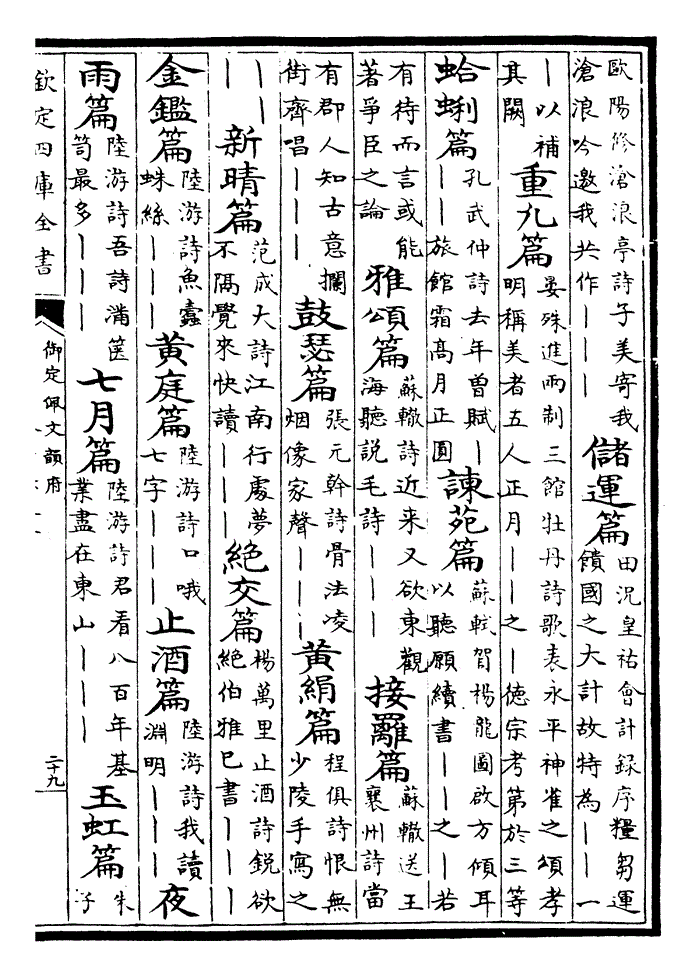 歐陽修滄浪亭詩子美寄我
滄浪吟邀我共作｜｜｜
儲運篇
田況皇祐會計録序糧芻運
饋國之大計故特為｜｜一
｜以補
其闕
重九篇
晏殊進兩制三館牡丹詩歌表永平神雀之頌孝
明稱美者五人正月｜｜之｜徳宗考第於三等
蛤蜊篇
孔武仲詩去年曽賦｜
｜｜旅館霜高月正圓
諫苑篇
蘇軾賀楊龍圖啟方傾耳
以聽願續書｜｜之｜若
有待而言或能
著爭臣之論
雅頌篇
蘇轍詩近来又欲東觀
海聽説毛詩｜｜｜
接䍦篇
蘇轍送王
襄州詩當
有郡人知古意攔
街齊唱｜｜｜
鼓瑟篇
張元幹詩骨法凌
烟像家聲｜｜｜
黄絹篇
程俱詩恨無
少陵手寫之
｜｜
｜
新晴篇
范成大詩江南行處夢
不隔覺來快讀｜｜｜
絶交篇
楊萬里止酒詩鋭欲
絶伯雅已書｜｜｜
金鑑篇
陸游詩魚蠧
蛛絲｜｜｜
黄庭篇
陸游詩口哦
七字｜｜｜
止酒篇
陸游詩我讀
淵明｜｜｜
夜
雨篇
陸游詩吾詩滿篋
笥最多｜｜｜
七月篇
陸游詩君看八百年基
業盡在東山｜｜｜
玉虹篇
朱
子
欽定四庫全書
御定佩文韻府
二十九